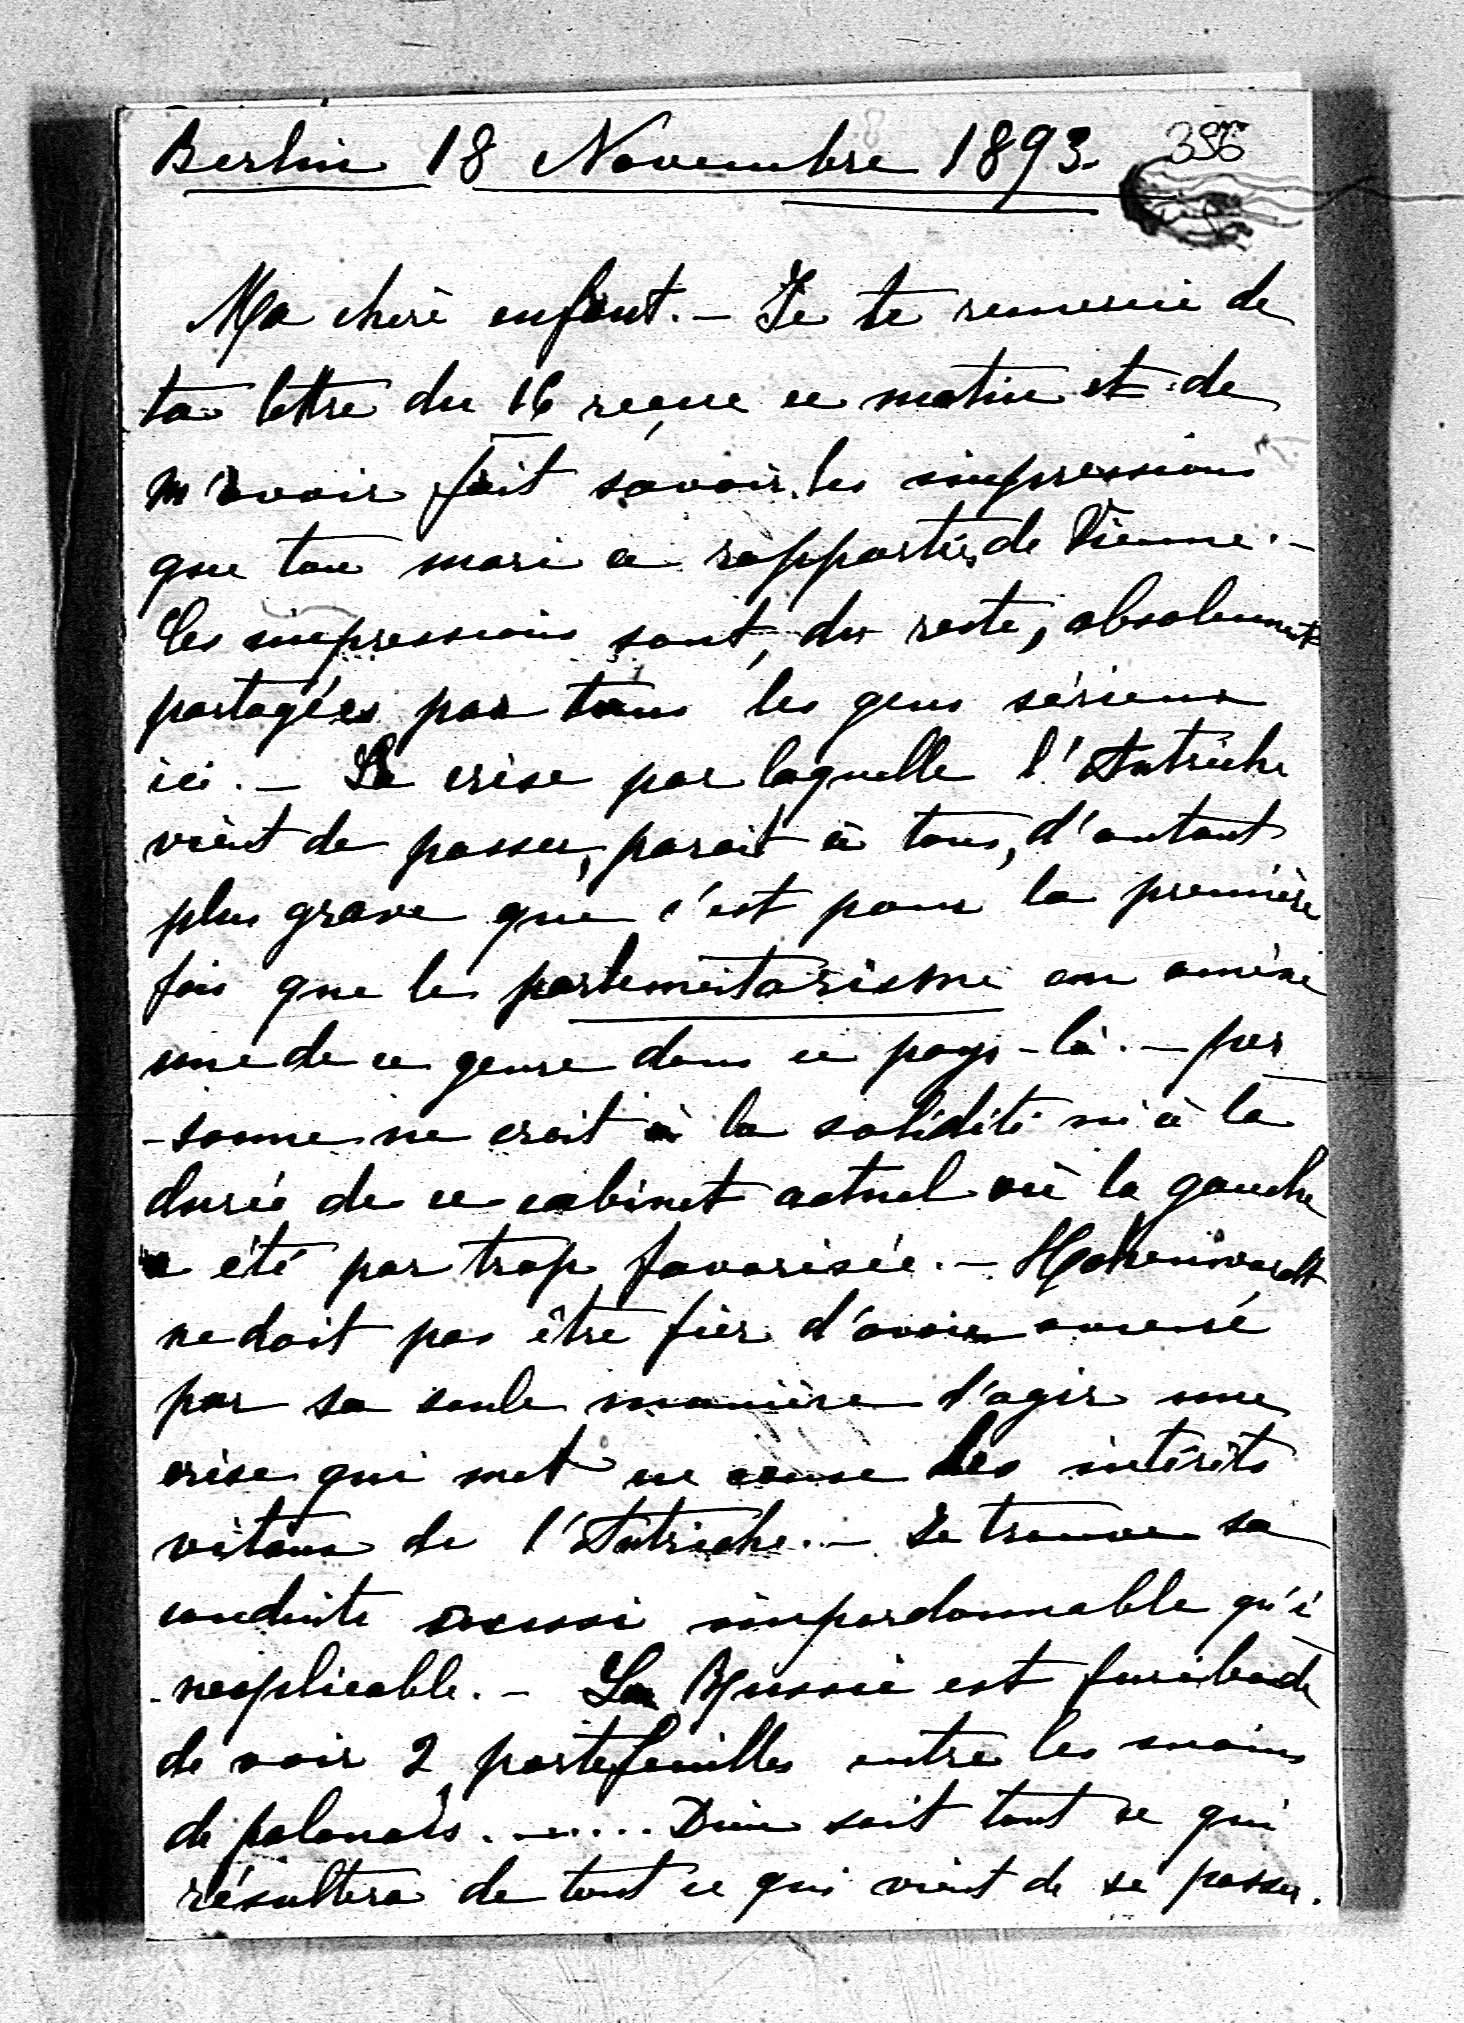 Berlin 18 Novembre 1893.
356
Ma chère enfant. - Je te remercie de
ta lettre du 16 reçue ce matin et de
m'avoir fait savoir les impressions
que ton mari a rapportées de Vienne. -
Ces impressions sont, du reste, absolument
partagées par tous les gens sérieux
ici. - La crise par laquelle l'Autriche
vient de passer, parait à tous, d'autant
plus grave que c'est pour la première
fois que le parlementarisme en amène
une de ce genre dans ce pays-là. - per
-sonne ne croit à la solidité ni à la
durée de ce cabinet actuel où la gauche
a été par trop favorisée. - Hohenwardt
ne doit pas être fier d'avoir amené
par sa seule manière d'agir une
crise qui met en cause les intérêts
vitaux de l'Autriche. - Je trouve sa
conduite aussi impardonnable qu'i
-nexplicable. - La Russie est furibonde
de voir 2 portefeuilles entre les mains
de polonais. ...... Dieu sait tout ce qui
résultera de tout ce qui vient de se passer.